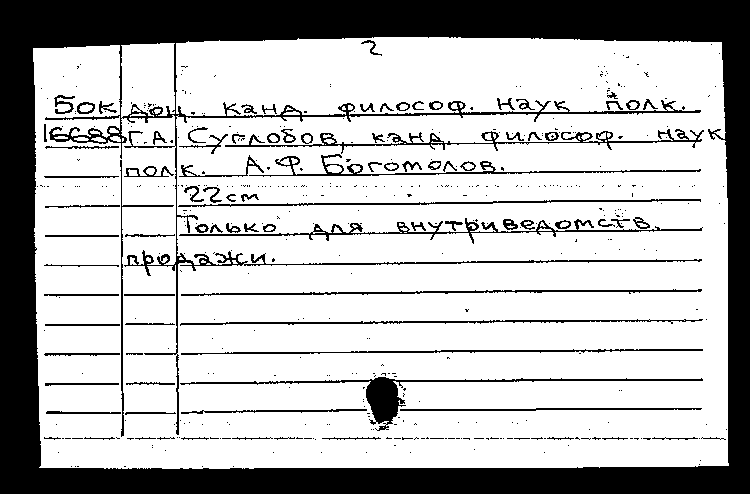 2
Бок доц. канд. философ. наук полк.
16688 Г.А. Суглобов, канд. философ. наук
полк. А.Ф. Богомолов.
22 см
Только для внутриведомств.
продажи.